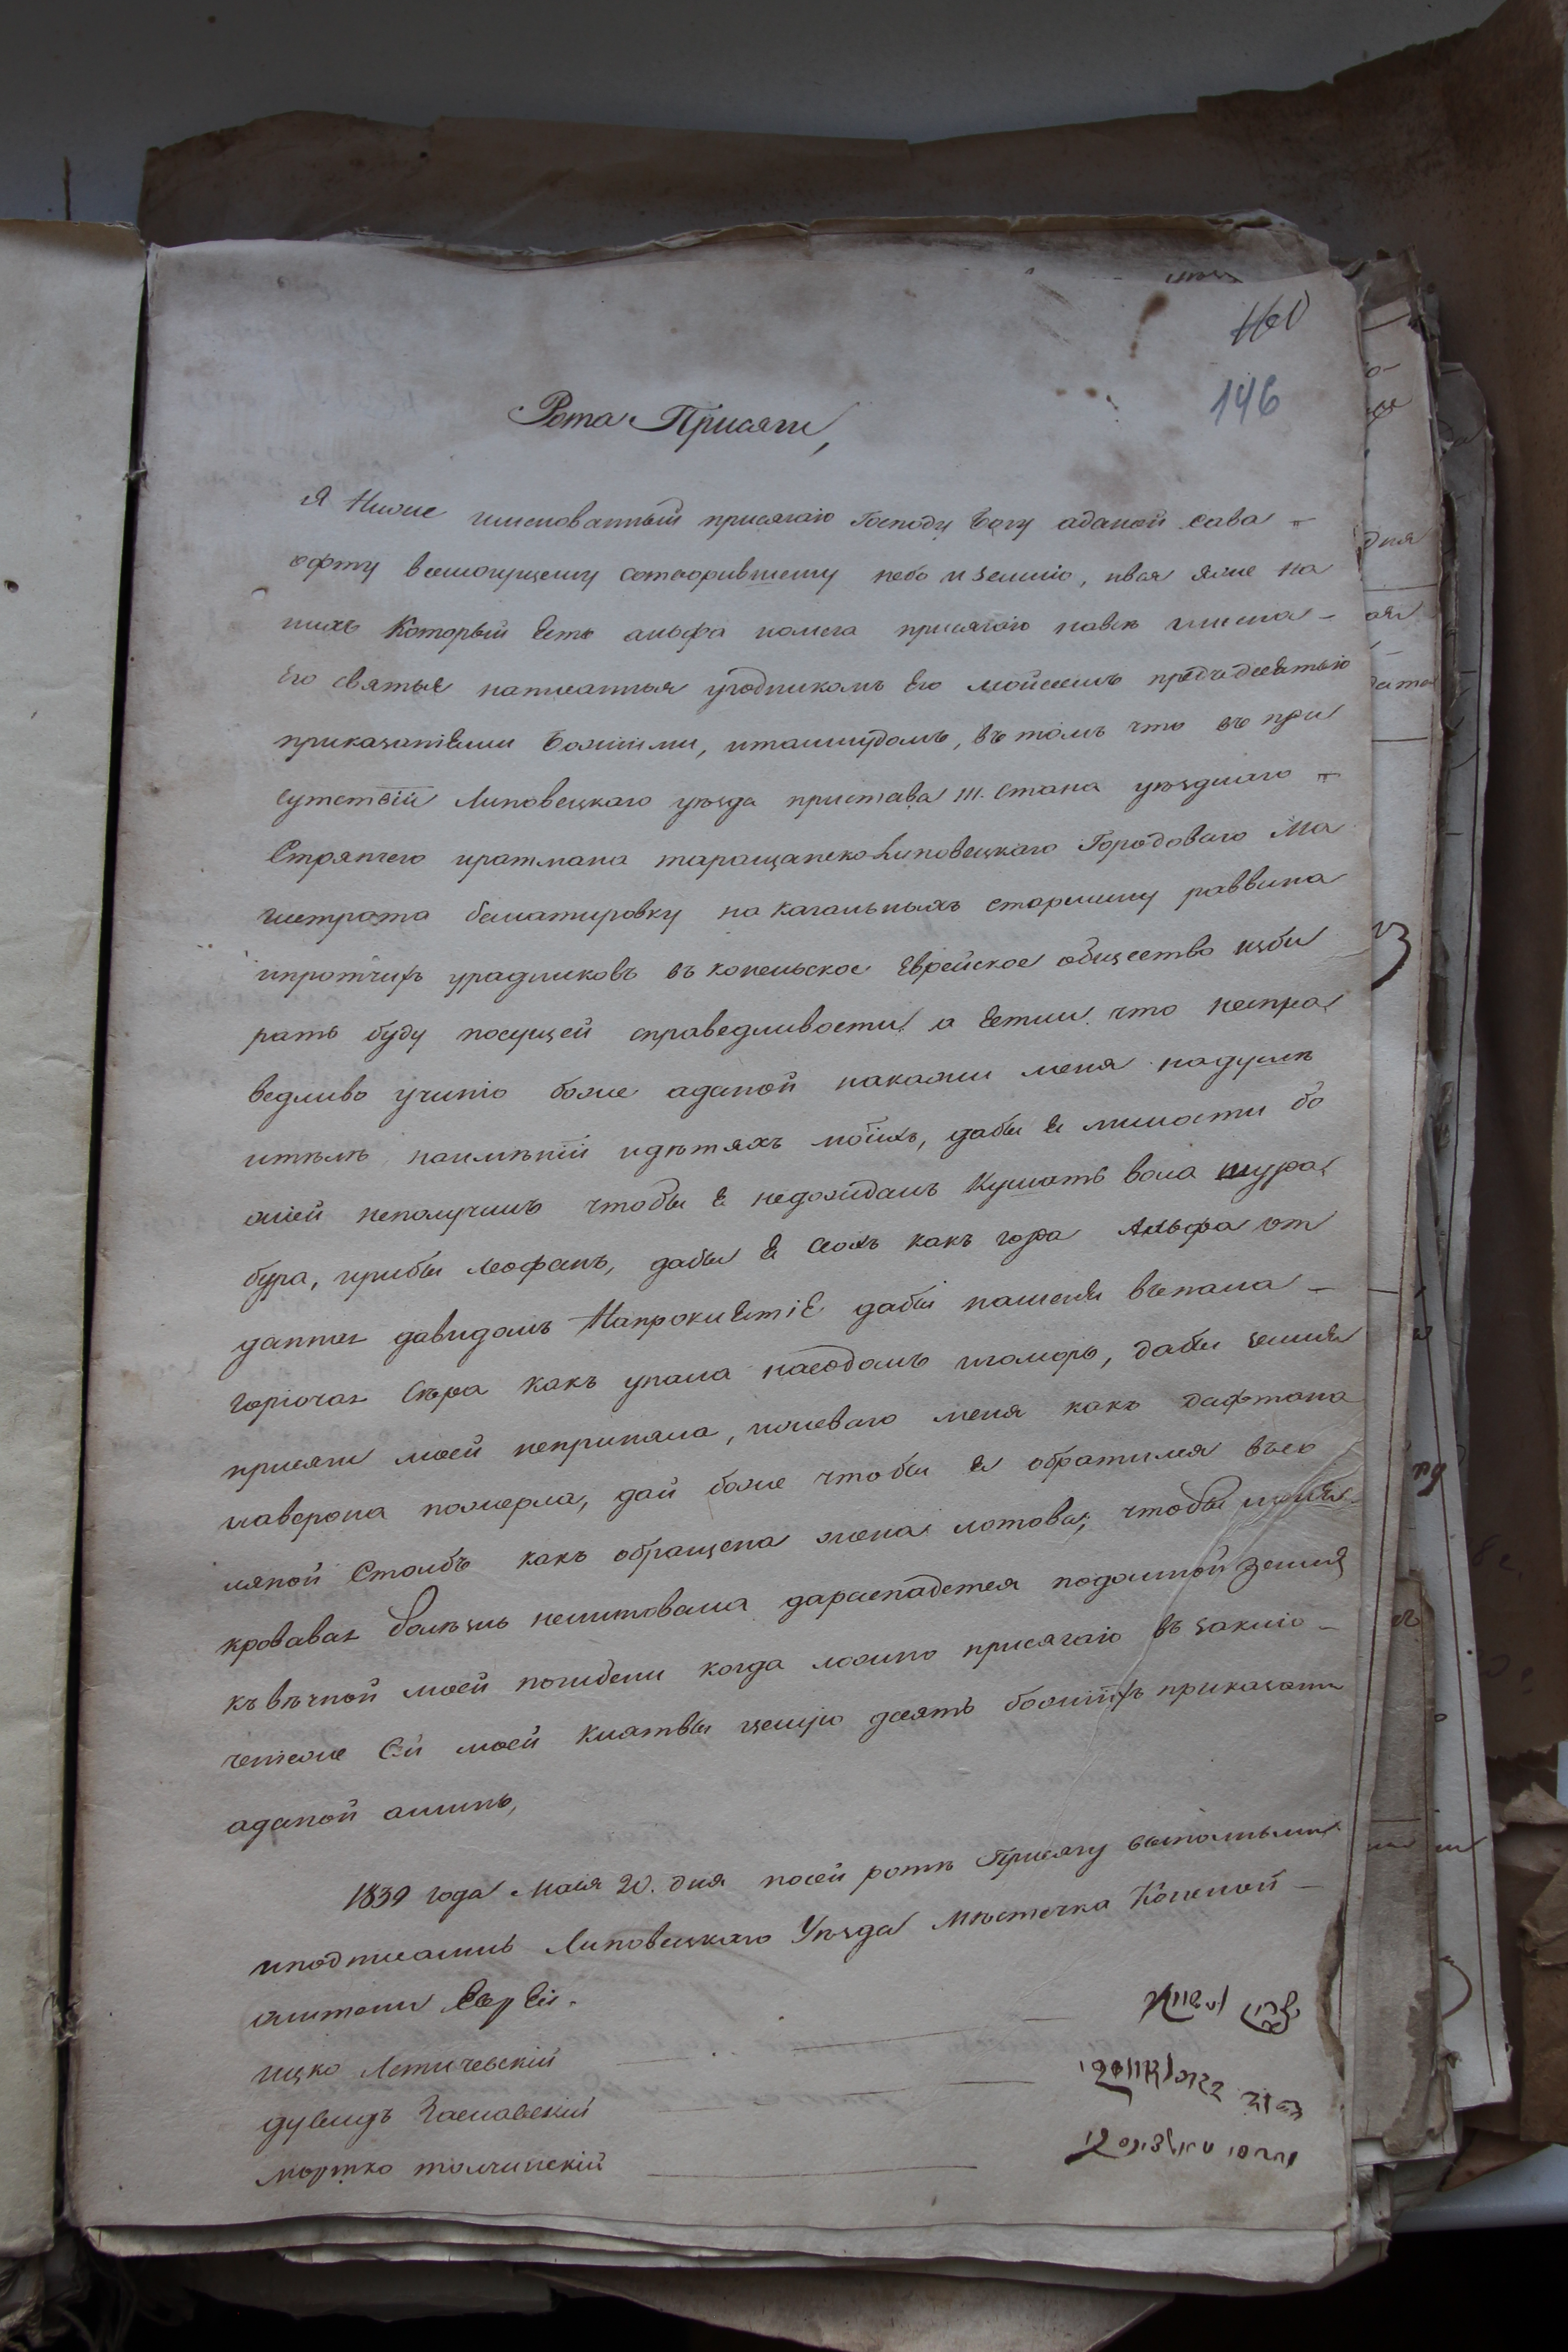 146
Рота Присяги,
Я Ниже именованный присягаю Господу Богу аданой сава-
офту всемогущему сотворившему небо и землю, ився яже на
нихъ Который Есть альфа иомега присягаю навсе имена-
Его святые написанныя угодникомъ Его мойсеемъ предъ десетью
приказанiЕми Божiими, италмудомъ, въ томъ что въ при
сутствiи Липовецкаго уѣзда пристава III. стана уѣзднаго
Стряпчего иратмана таращанско Липовецкаго Городоваго Ма
гистрата баллатировку на кагальныхъ старшину раввина
ипротчихъ урадниковъ въ копельское Еврейское общество изби
рать буду посущей справедливости а Если что неспра
ведливо учиню боже аданой накажи меня надуше
ителѣ наимѣнiи идѣтяхъ моихъ, дабы Е милости бо
жiей неполучилъ чтобы Е недождалъ Кушать вола шура
бура, ирибы леофанъ, дабы Е сохъ какъ гора
данная давидомъ дабы наменЕ въпала-
горючая Сѣра какъ упала насодомъ игоморъ, дабы земля
присяги моей непринела, иожеваго меня какъ дафтана
иаверона пожерла, дай боже чтобы Е обратился въсо
ляной Столбъ какъ обращена жена лотова; чтобы
кровавая болѣзнь неминовала дараспадется подомной земля
къвѣчной моей погибели когда ложно присягаю въ заклю-
ченiе Сей моей Клятвы целую десять божiихъ приказани
аданой аминь,
1839 года Маiя 20. дня посей ротѣ Присягу выполныли
иподписались Липовецкаго Уѣзда Мѣстечка Копелой-
жители ЕврЕи.
ицко Летичевскiй
дувидъ Заславскiй
мортко толчинскiй